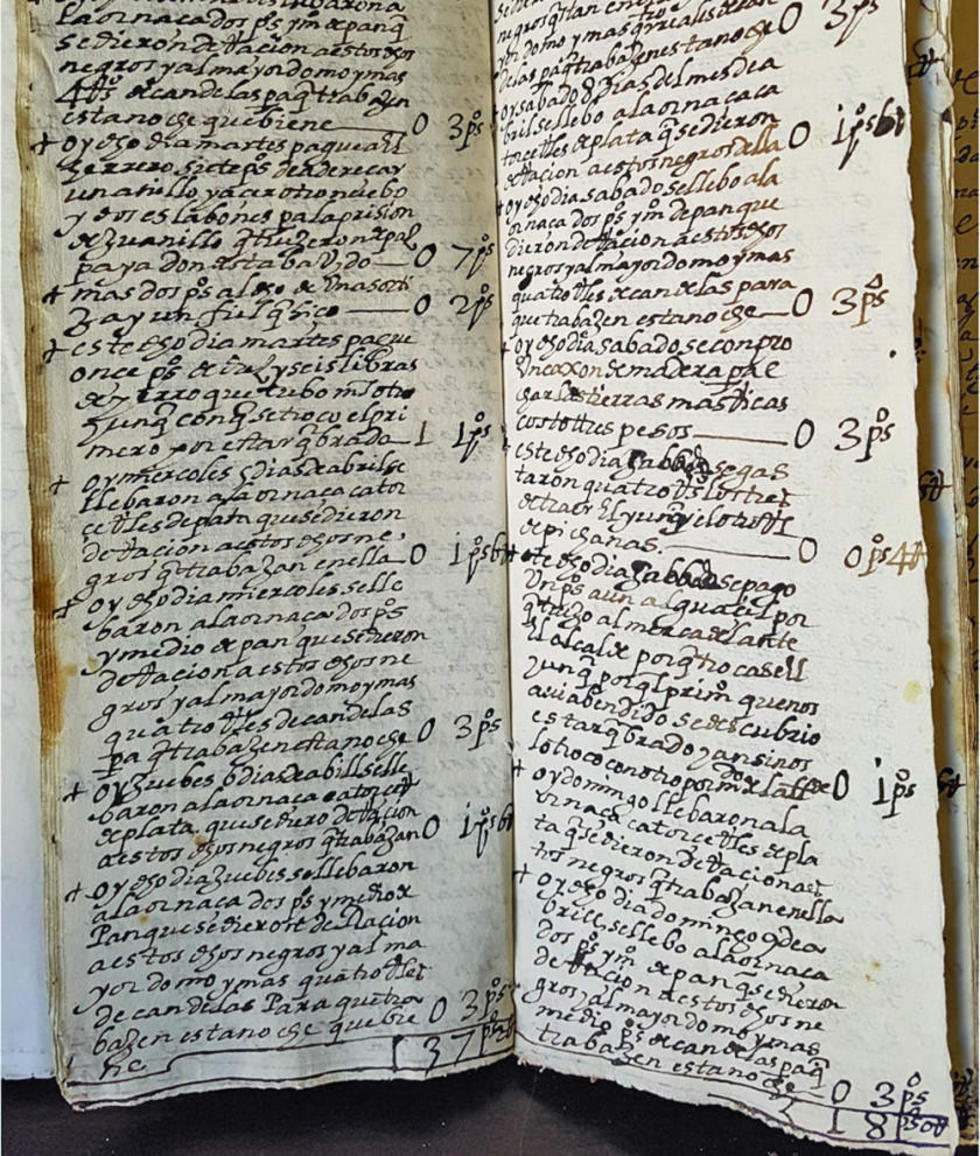 la ornaca dos ps ym de pan q̃
se dieron de Racion a estos dhos
negros y al mayordomo y mas
4 Rs de candelas pa q̃ trabazen
estano che que biene 0 3 ps
+ oy dho dia martes pague a il
herrero siete ps de aderecar
un anillo y acer otro nuebo
y dos eslabones pa la prision
de Juanillo q̃ truzeron de pal
pa ya don estaba Vido 0 7 ps
+ mas dos ps al dho de una sorti
Ja y un fiel q̃ hico 0 2 ps
+ este dho dia martes pague
once ps de diez y seis libras
de yerro que tubo mas otro
Junq̃ con q̃ se troco el pri
mero por estar q̃brado 1 1 ps
+ oy miercoles 5 dias de abril se
llebaron a la ornaca cator
ce Rles de plata que se dieron
de Racion a estos dhos ne
gros q̃ trabazan en ella 0 1 ps 6 R
+ oy dho dia miercoles se lle
baron a la ornaca dos ps
y medio de pan que se dieron
de Racion a estos dhos ne
gros y al mayordomo y mas
quatro Rles de candelas
pa q̃ trabazen esta noche 0 3 ps
+ oy Juebes 6 dias de abill se lle
baron a la ornaca catorce R
de plata que se diero de Racion
a estos dhos negros q̃ trabazan 0 1 ps 6 R
+ oy dho dia Juebes se llebaron
a la ornaca dos ps y medio de
Pan que se dieron de Racion
a estos dhos negros y al ma
yordomo y mas quatro Rles
de candelas Para que tra
bazen estano che que bie 0 3 ps
ne 1 37 ps
yordomo y mas
de las pa q̃ trabazen esta noche 0 3 ps
+ oy sabado 8 Dias del mes de a
bril se llebo a la ornaca ca
torce Rles de plata q̃ se dieron
de Racion a estos negros de lla 0 1 ps 6 R
+ oy dho dia sabado se llebo a la
ornaca dos ps ym de pan que
dieron de Racion a estos dhos
negros y al mayordomo y mas
quatro Rles de candelas para
que trabazen estano che 0 3 ps
+ oy dho dia sabado se conpro
Un caxon de madera pa e
char las tierras masticas
costo tres pesos 0 3 ps
este dho dia sabbado se gas
taron quatro Rs los tres
de traer El yunq̃ y el otro R
de pichanas. 0 0 ps 4 R
+ este dho dia sabbado se pago
Un ps a un alguacil por
q̃ truzo al mercader ante
El alcalde por q̃ trocase ll
Junq̃ por q̃ l prim̃ que nos
avia bendido se descubrio
estar q̃brado y ansi nos
lo troco con otro por m de lalcde 0 1 ps
+ oy domingo llebaron a la
ornaca catorce Rles de pla
ta q̃ se dieron de Racion a es
tos negros q̃ trabazan en ella
+ oy dho dia domingo 9 de a
bril, se llebo a la ornaca
dos ps ym de pan q̃ se dieron
de Racion a estos dhos ne
gros y al mayordomo y mas
medio ps de candelas pa q̃
trabazen estano che 0 3 ps
1 8 ps 0 R